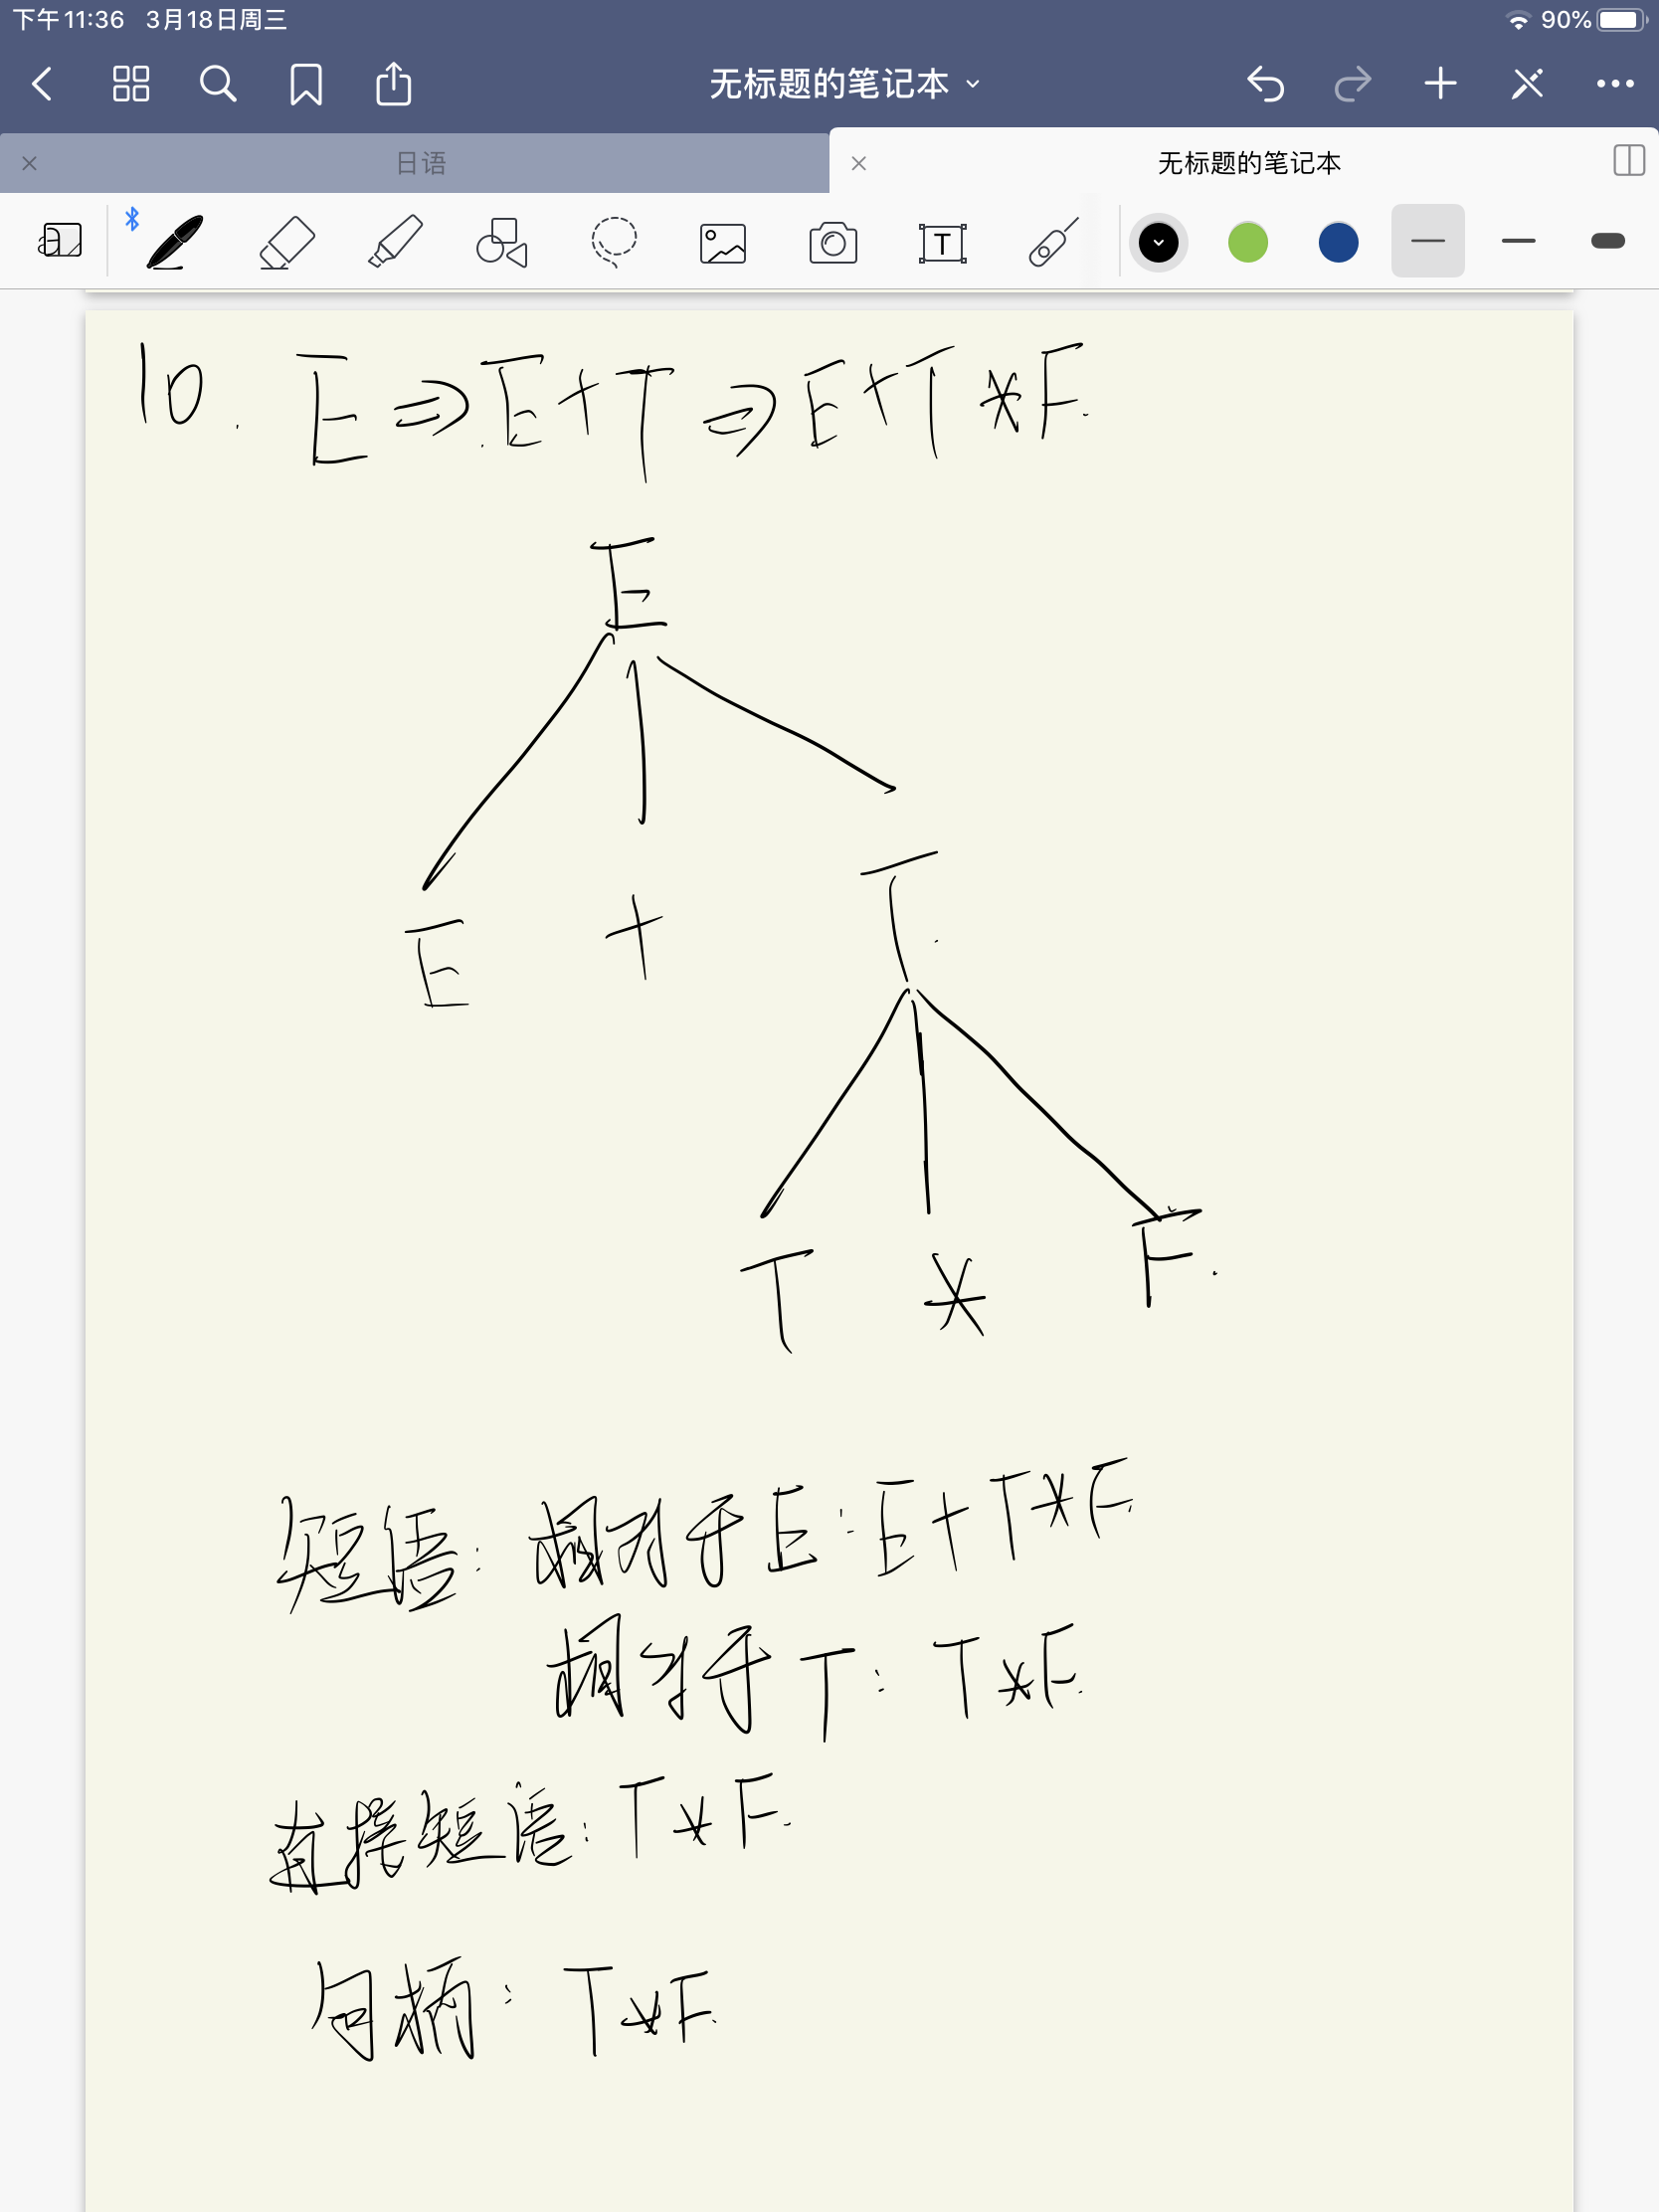 下午11:36 3月18日周三 90%
无标题的笔记本
日语 无标题的笔记本
10. E⇒E+T⇒E+T*F.
E
E + T
T * F.
短语: 相对于E:E+T*F.
相对于T: T*F.
直接短语: T*F.
句柄: T*F.